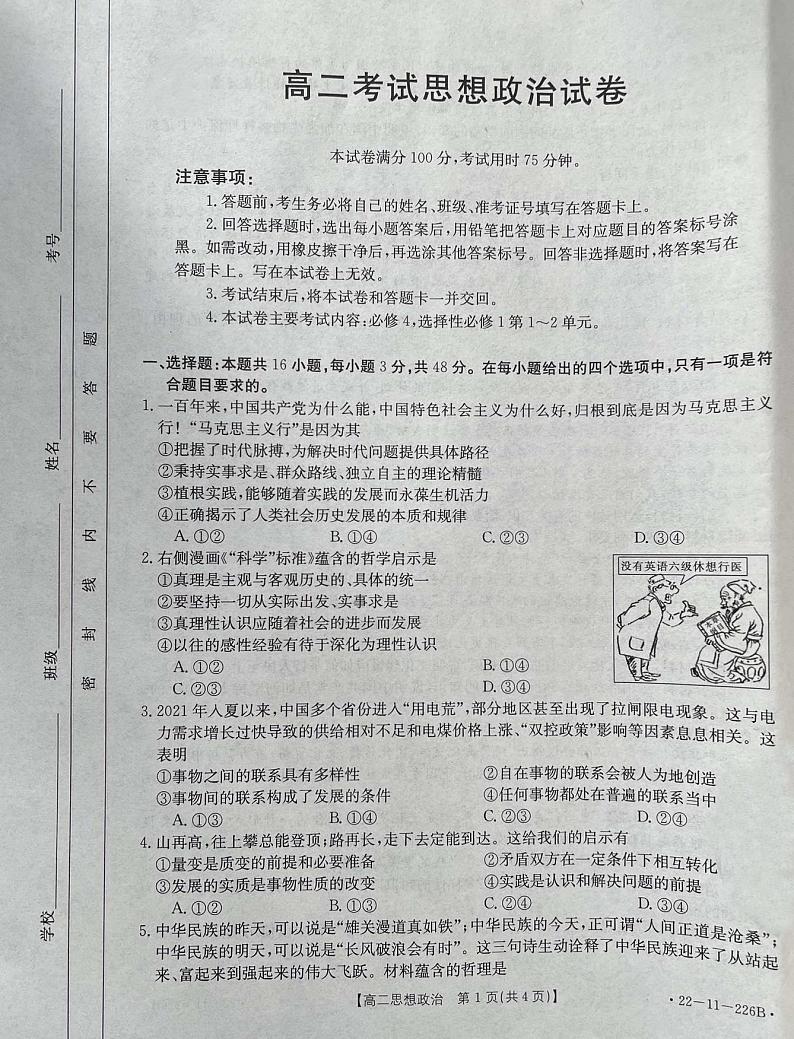 高二考试思想政治试卷
本试卷满分100分,考试用时75分钟。
注意事项:
1.答题前,考生务必将自己的姓名、班级、准考证号填写在答题卡上。
2.回答选择题时,选出每小题答案后,用铅笔把答题卡上对应题目的答案标号涂
黑。如需改动,用橡皮擦干净后,再选涂其他答案标号。回答非选择题时,将答案写在
答题卡上。写在本试卷上无效。
3.考试结束后,将本试卷和答题卡一并交回。
4.本试卷主要考试内容:必修4,选择性必修1第1~2单元。
一、选择题:本题共16小题,每小题3分,共48分。在每小题给出的四个选项中,只有一项是符
合题目要求的。
1.一百年来,中国共产党为什么能,中国特色社会主义为什么好,归根到底是因为马克思主义
行!“马克思主义行”是因为其
①把握了时代脉搏,为解决时代问题提供具体路径
②秉持实事求是、群众路线、独立自主的理论精髓
③植根实践,能够随着实践的发展而永葆生机活力
④正确揭示了人类社会历史发展的本质和规律
A.①② B.①④ C.②③ D.③④
2.右侧漫画《“科学”标准》蕴含的哲学启示是
①真理是主观与客观历史的、具体的统一
②要坚持一切从实际出发、实事求是
③真理性认识应随着社会的进步而发展
④以往的感性经验有待于深化为理性认识
A.①② B.①④
C.②③ D.③④
没有英语六级休想行医
3.2021年入夏以来,中国多个省份进入“用电荒”,部分地区甚至出现了拉闸限电现象。这与电
力需求增长过快导致的供给相对不足和电煤价格上涨、“双控政策”影响等因素息息相关。这
表明
①事物之间的联系具有多样性 ②自在事物的联系会被人为地创造
③事物间的联系构成了发展的条件 ④任何事物都处在普遍的联系当中
A.①③ B.①④ C.②③ D.②④
4.山再高,往上攀总能登顶;路再长,走下去定能到达。这给我们的启示有
①量变是质变的前提和必要准备 ②矛盾双方在一定条件下相互转化
③发展的实质是事物性质的改变 ④实践是认识和解决问题的前提
A.①② B.①③ C.②④ D.③④
5.中华民族的昨天,可以说是“雄关漫道真如铁”;中华民族的今天,正可谓“人间正道是沧桑”;
中华民族的明天,可以说是“长风破浪会有时”。这三句诗生动诠释了中华民族迎来了从站起
来、富起来到强起来的伟大飞跃。材料蕴含的哲理是
【高二思想政治 第1页(共4页)】
·22-11-226B·
学校
班级
姓名
考号
密封线内不要答题